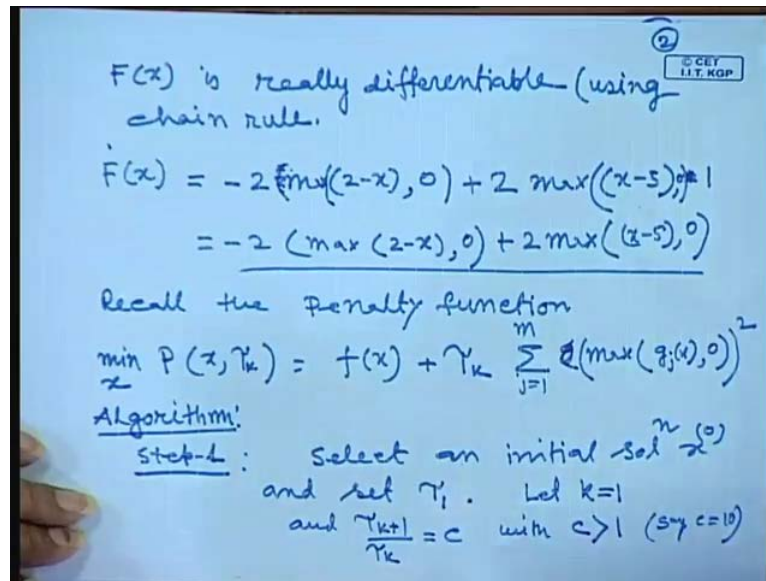 ②
© CET
I.I.T. KGP
F(x) is really differentiable (using
chain rule.
Ḟ(x) = -2 (max((2-x), 0) + 2 max((x-5), 0) 1
= -2 (max (2-x), 0) + 2 max((x-5), 0)
Recall the Penalty function
min_x P(x, τ_k) = f(x) + τ_k Σ_{j=1}^{m} (max(g_j(x), 0))²
Algorithm:
Step-1: Select an initial solⁿ x^(0)
and set τ_1. Let k=1
and τ_{k+1}/τ_k = c with c>1 (say c=10)